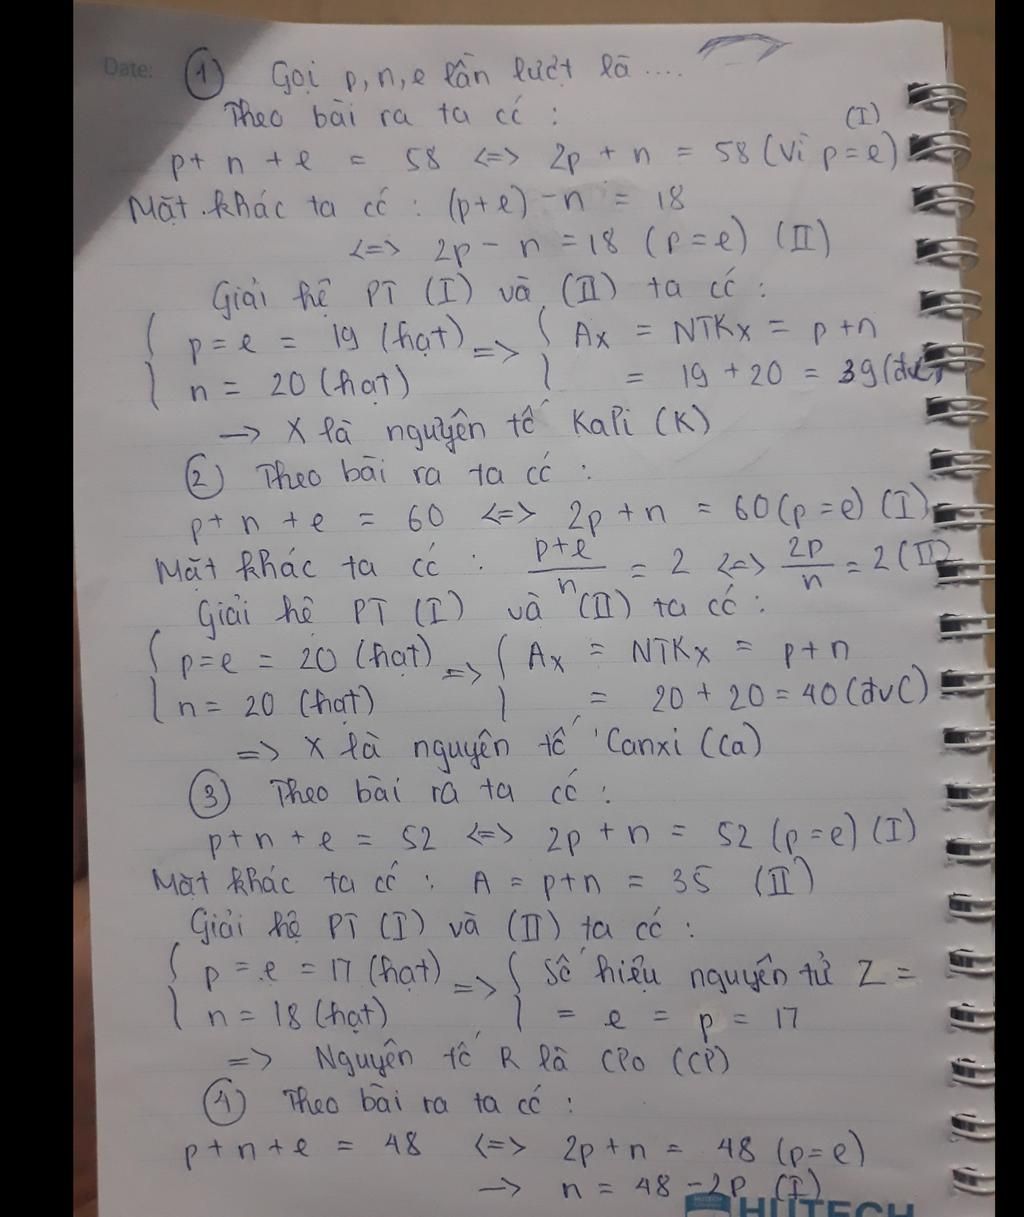 Date: ① Gọi p, n, e lần lượt là ....
Theo bài ra ta có :
p + n + e = 58 <=> 2p + n = 58 (Vì p = e) (I)
Mặt khác ta có : (p+e) - n = 18
<=> 2p - n = 18 (p = e) (II)
Giải hệ PT (I) và (II) ta có :
{ p = e = 19 (hạt) => { Ax = NTKx = p + n
n = 20 (hạt) = 19 + 20 = 39 (đvC)
-> X là nguyên tố Kali (K)
② Theo bài ra ta có :
p + n + e = 60 <=> 2p + n = 60 (p = e) (I)
Mặt khác ta có : (p+e)/n = 2 <=> 2p/n = 2 (II)
Giải hệ PT (I) và (II) ta có :
{ p = e = 20 (hạt) => { Ax = NTKx = p + n
n = 20 (hạt) = 20 + 20 = 40 (đvC)
=> X là nguyên tố Canxi (Ca)
③ Theo bài ra ta có :
p + n + e = 52 <=> 2p + n = 52 (p = e) (I)
Mặt khác ta có : A = p + n = 35 (II)
Giải hệ PT (I) và (II) ta có :
{ p = e = 17 (hạt) => { Số hiệu nguyên tử Z =
n = 18 (hạt) = e = p = 17
=> Nguyên tố R là Clo (Cl)
④ Theo bài ra ta có :
p + n + e = 48 <=> 2p + n = 48 (p = e)
-> n = 48 - 2p (I)
HUTECH